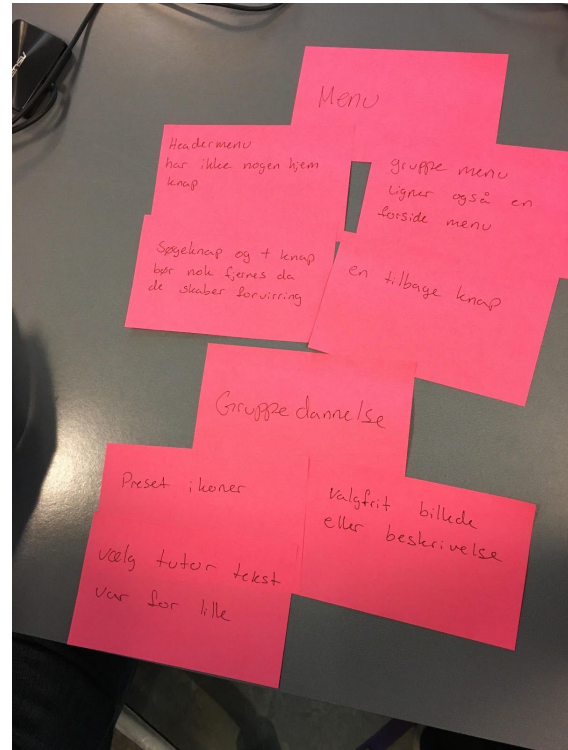 Menu
Headermenu
har ikke nogen hjem
knap
gruppe menu
ligner også en
forside menu
Søgeknap og + knap
bør nok fjernes da
de skaber forvirring
en tilbage knap
Gruppedannelse
Preset ikoner
valgfrit billede
eller beskrivelse
vælg tutor tekst
var for lille